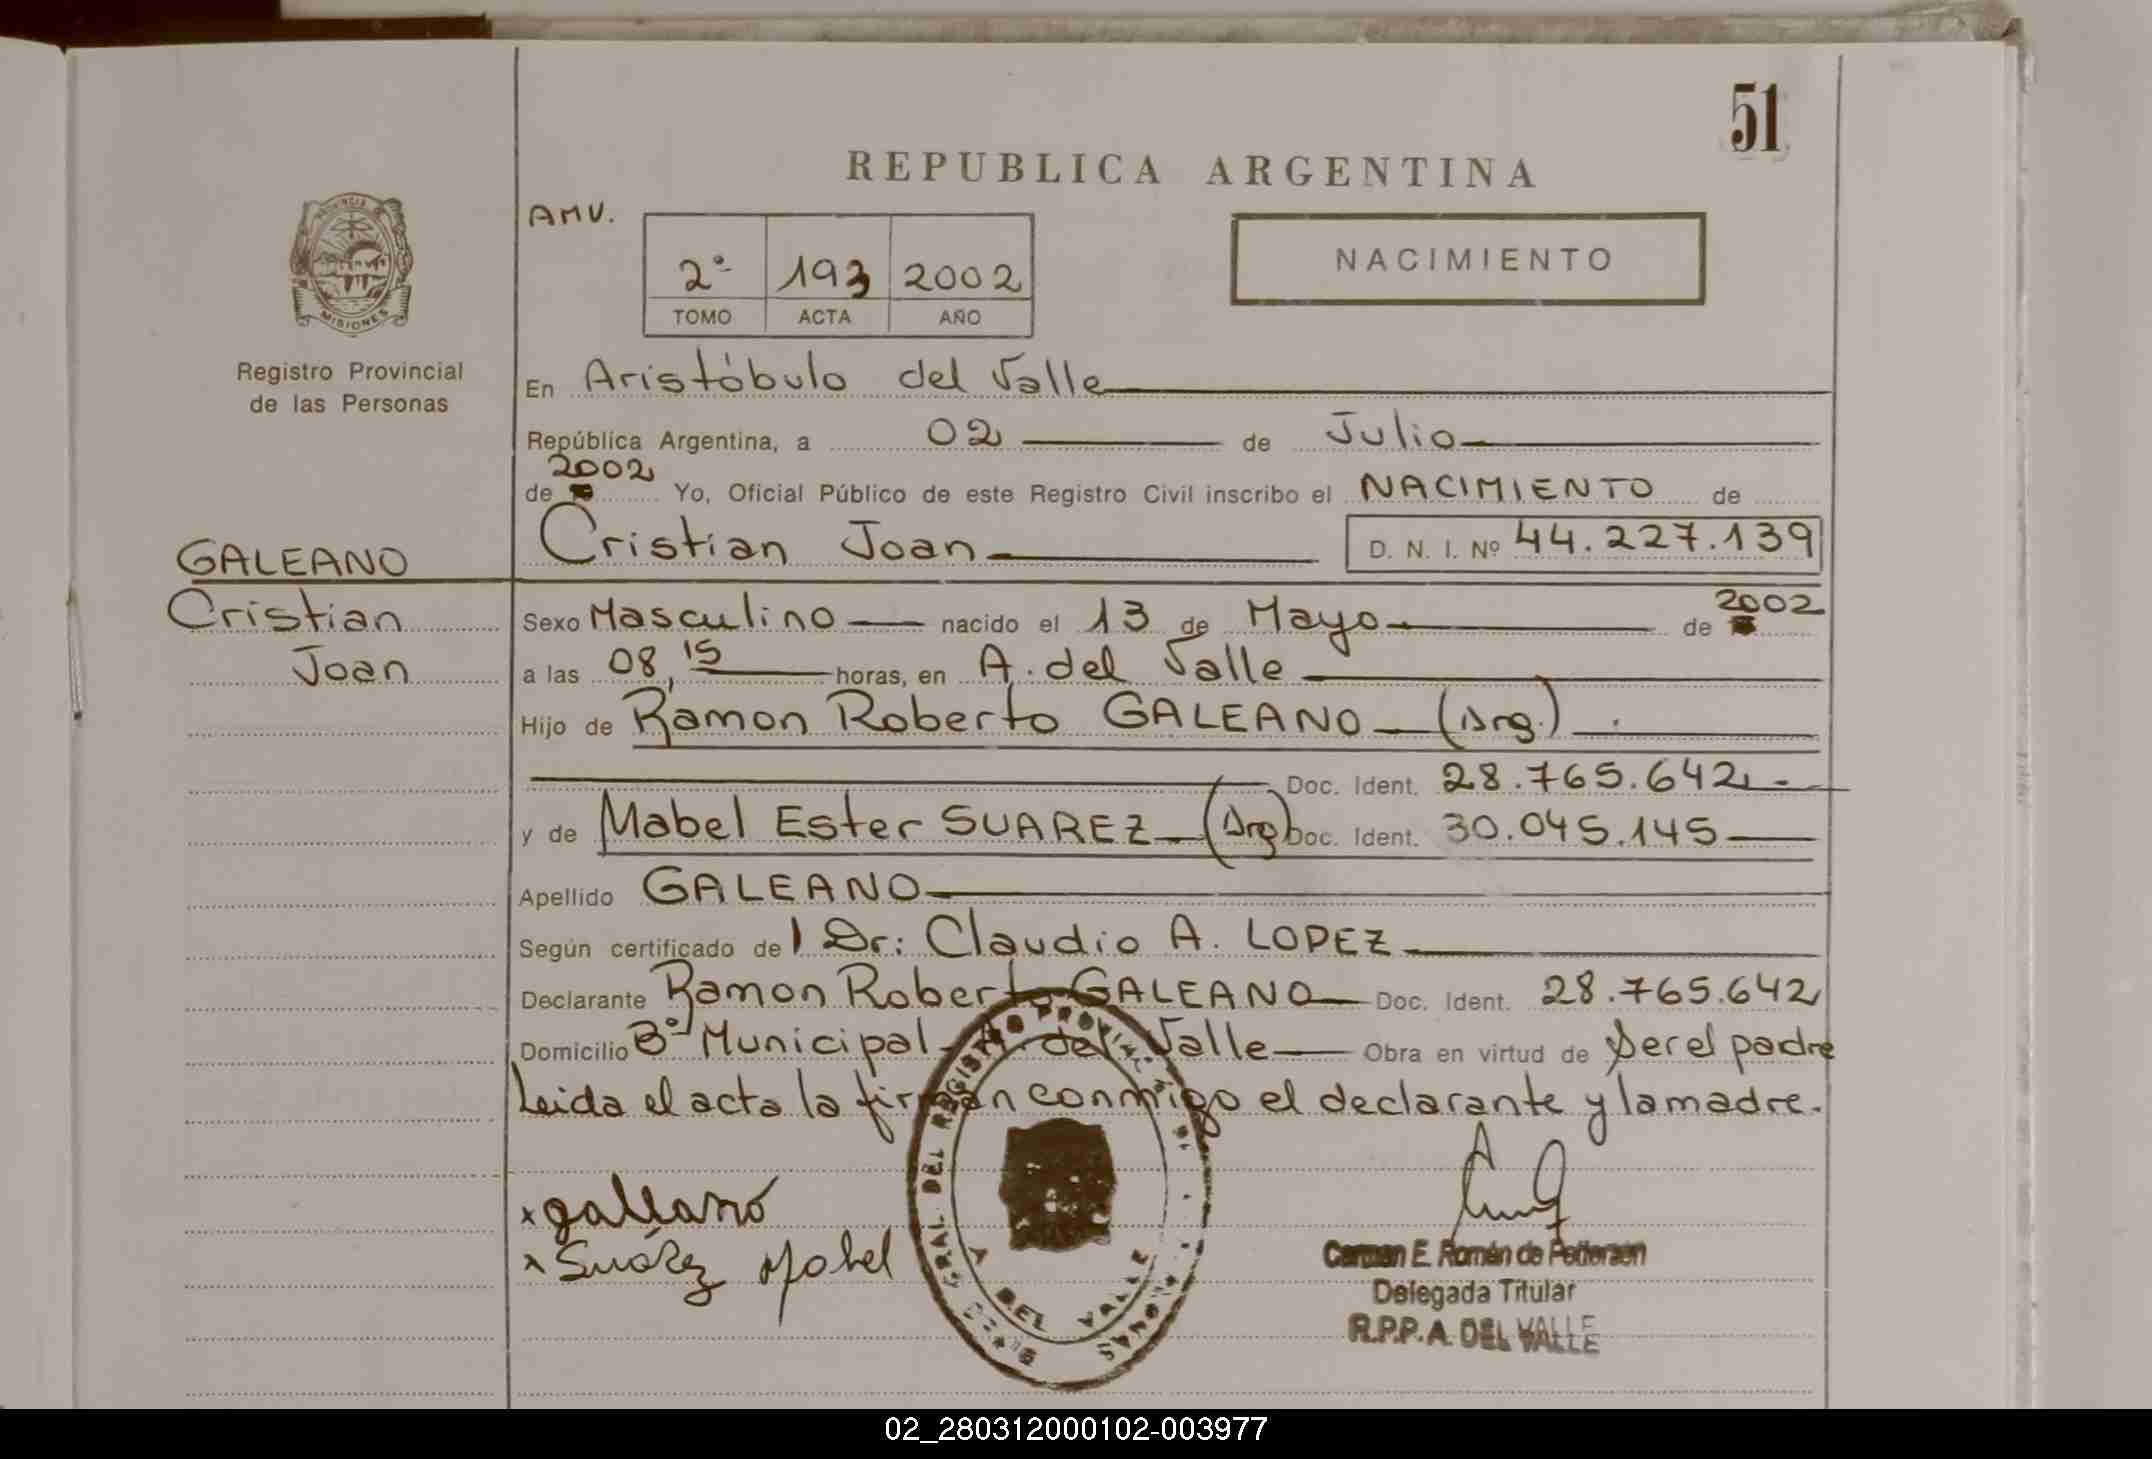 51
REPUBLICA ARGENTINA
AMV.
2º 193 2002
TOMO ACTA AÑO
NACIMIENTO
PROVINCIA DE
MISIONES
Registro Provincial
de las Personas
En Aristóbulo del Valle
República Argentina, a 02 de Julio
2002
de Yo, Oficial Público de este Registro Civil inscribo el NACIMIENTO de
Cristian Joan D. N. I. Nº 44.227.139
GALEANO
Cristian
Joan
Sexo Masculino nacido el 13 de Mayo de 2002
a las 08,15 horas, en A. del Valle
Hijo de Ramon Roberto GALEANO (Arg.)
Doc. Ident. 28.765.642.-
y de Mabel Ester SUAREZ (Arg) Doc. Ident. 30.045.145
Apellido GALEANO
Según certificado de l Dr: Claudio A. LOPEZ
Declarante Ramon Roberto GALEANO Doc. Ident. 28.765.642
Domicilio Bº Municipal - A. del Valle Obra en virtud de ser el padre
Leida el acta la firman conmigo el declarante y la madre.
x galeano
x Suárez Mabel
GRAL. DEL REGISTRO PROVINCIAL DE
A DEL VALLE
Carmen E. Román de Pedersen
Delegada Titular
R.P.P. A. DEL VALLE
02_280312000102-003977